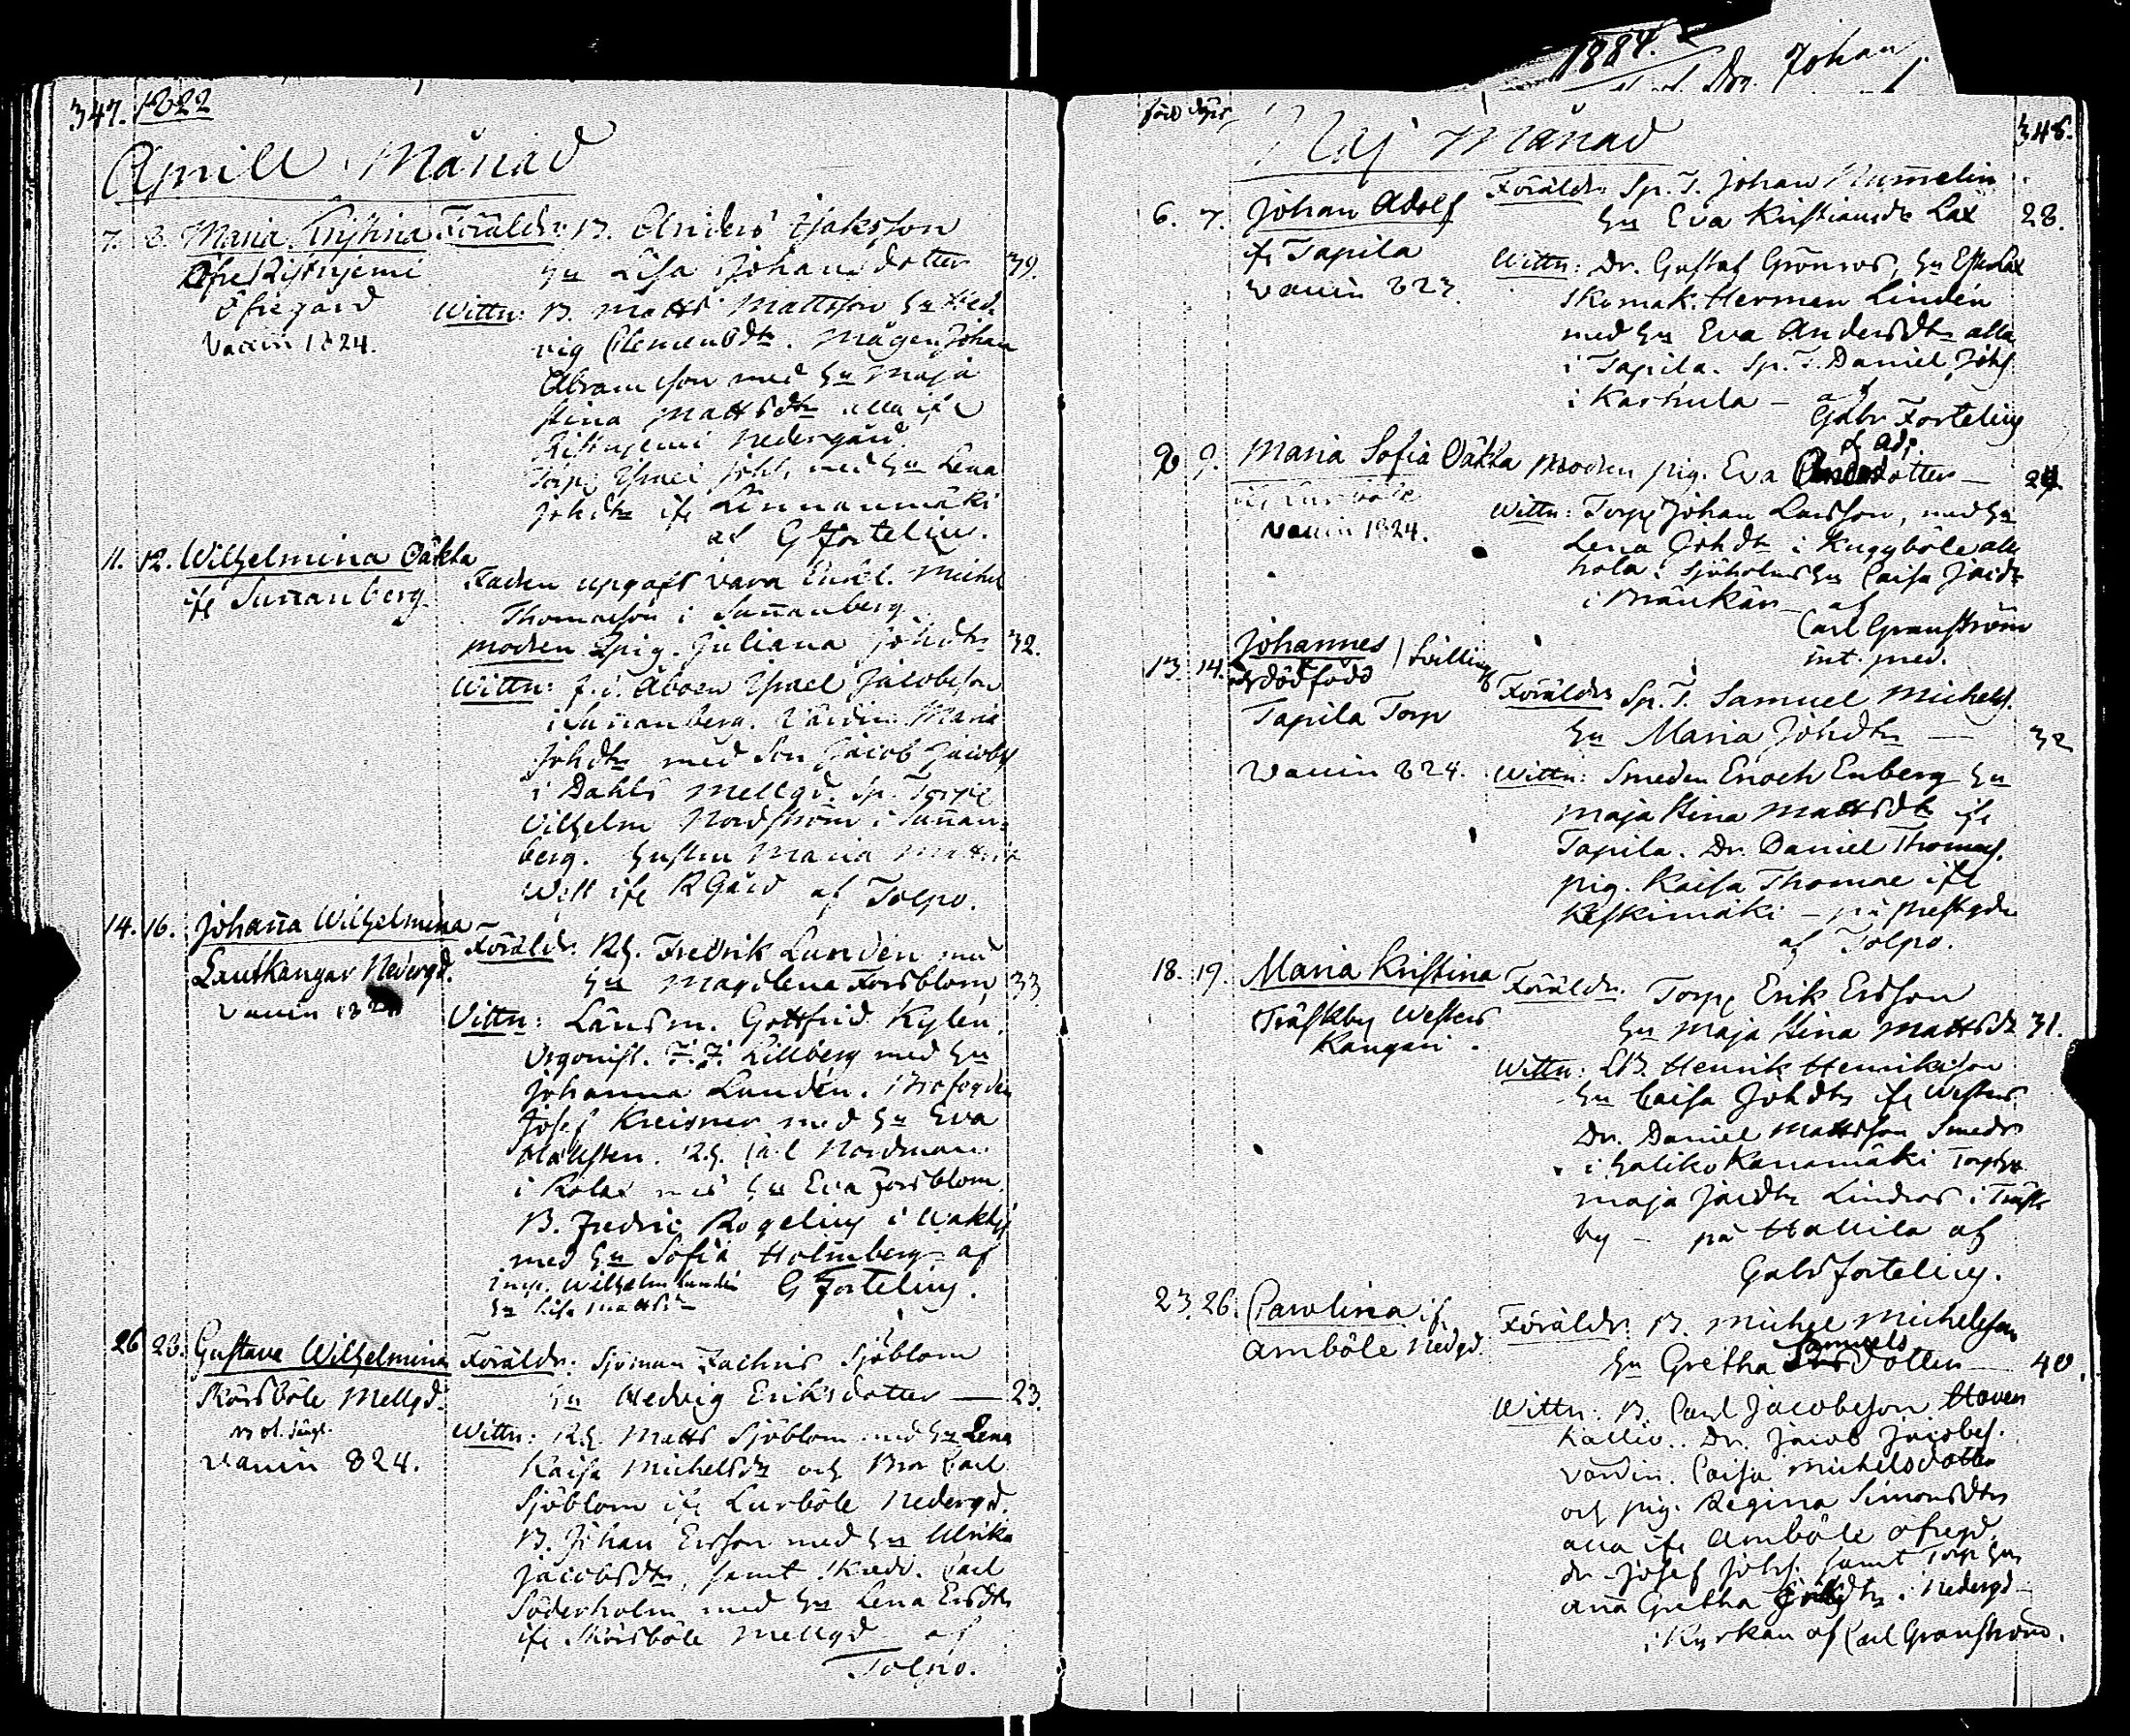 1884.
Johan
347. 1822
Aprill Månad
7. 8. Maria Kristina Föräldr. B. Anders Isaksson
Öfre Ristnjemi hu Lisa Johansdotter 39.
Öfregård Wittn: B. Matts Mattsson hu Hed-
Vaccin 1824. vig Clemensdtr. Mågen Johan
Abramsson med hu Maja
Stina Mattsdtr alla ifr
Ristnjemi Nedergård.
Torp. Israel Johs. med hu Lena
Johdtr ifr Linnanmäki
af G Fortelius.
11. 12. Wilhelmina Oäkta
ifr Sunnanberg. Fadren upgafs vara Enkl. Michel
Thomasson i Sunnanberg
Modren pig. Juliana Johdtr 32.
Wittn: f.d. Åboen Israel Jacobsson
i Sunnanberg. Värdin Maria
Johdtr med Son Jacob Jacobss
i Dahls Mellgd. Sp. Torpe
Vilhelm Nordström i Sunnan-
berg. hustru Maria
ifr RGård af Tolpo.
14. 16. Johanna Wilhelmina
Lautkangar Nedergd. Föräldr. Rh. Fredrik Lunden med
hu Magdlena Forsblom 33.
Vaccin 1824 Vittn: Länsm. Gottfrid Kylen,
Organist. F. F. Lillberg med hu
Johanna Lundén. Brofogden
Josef Kreisner med hu Eva
Rh. Carl Nordman
i Rölax med hu Eva Forsblom.
B. Fredric Rogelius i
med hu Sofia Holmberg af
Wilhelm Lunden G Fortelius.
hu Lisa Mattsdtr
26 28. Gustava Wilhelmina Föräldr. Sjöman Zachris Sjöblom
Skårsböle Mellgd. hu Hedvig Eriksdotter — 23.
Wittn: Rh. Matts Sjöblom med hu Lena
Vaccin 824. Kaisa Michelsdtr och Bror Carl
Sjöblom ifr Lurböle Nedergd.
B. Johan Ersson med hu Ulrika
Jacobsdtr, samt Skrädd. Carl
Söderholm med hu Lena Ersdtr
ifr Skårsböle Mellgd af
Tolpo.
föd döpt
Maj Månad 348.
6. 7. Johan Adolf Föräldr. Sp. T. Johan Nummelin
ifr Tapila hu Eva Kristiansdr Lax 28.
Vaccin 823. Wittn: Dr. Gustaf Grönros, hu
Skomak. Herman Lindén
med hu Eva Andersdtr alla
i Tapila. Sp. T. Daniel Johs
i Karhula — af
Gabr Fortelius
Adj.
9. Maria Sofia Oäkta Modren pig. Eva dotter — 24
Wittn: Torp Johan Larsson, med hu
Vaccin 1824. Lena Johdtr i Rugyböle
i Bränkärr af
Carl Granström
int. pred.
13. 14. Johannes / Tvilling
dödfödd
Tapila Torp Föräldr Sp. T. Samuel Michels.
hu Maria Johdtr — 32
Vaccin 824. Wittn: Smeden Enoch Enberg hu
Maja Stina Mattsdtr ifr
Tapila. Dr. Daniel Thomas.
pig. Kaisa Thomae ifr
Keskimäki — på Prestgdn
af Tolpo.
18. 19. Maria Kristina Föräldr. Torp Erik Ersson
Träskby Westers hu Maja Stina Mattsdr 31.
Kangari. Wittn: B. Henrik Henriksson
hu Caisa Johdtr ifr Westers
Dr. Daniel Mattsson Smeds
i Haliko Kanamäki
Maja Lindros i Träsk-
by — på Hallila af
Gabr Fortelius.
23. 26. Carolina ifr
Amböle Nedgd. Föräldr. B. Michel Michelsson
hu Gretha Samuels dotter — 40.
Wittn: B. Carl Jacobsson Haven
Kallio. Dr. Jacob Jacobss.
Värdin. Caisa Michelsdotter
och pig. Regina Simonsdtr
alla ifr Amböle öfregd.
dr. Josef Johs. samt Torp hu
Anna Gretha dtr i Nedergd
i Kyrkan af Carl Granström.